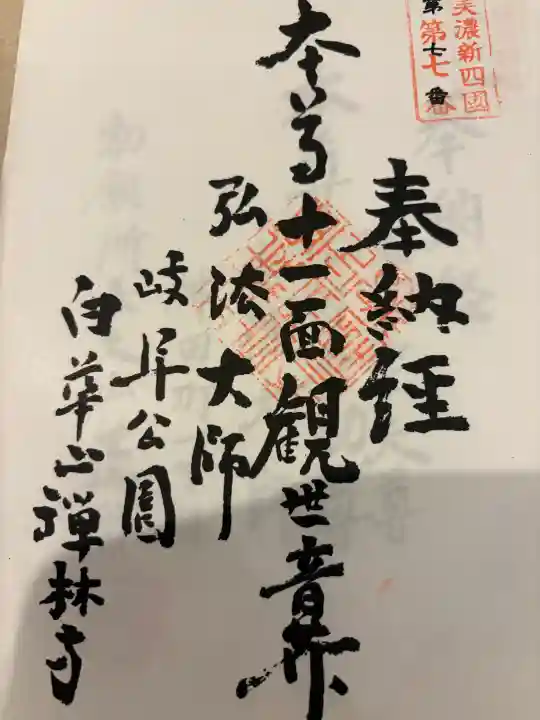 美濃新四國
第七七番
奉納経
本尊十一面観世音菩薩
弘法大師
岐阜公園
白華山禅林寺